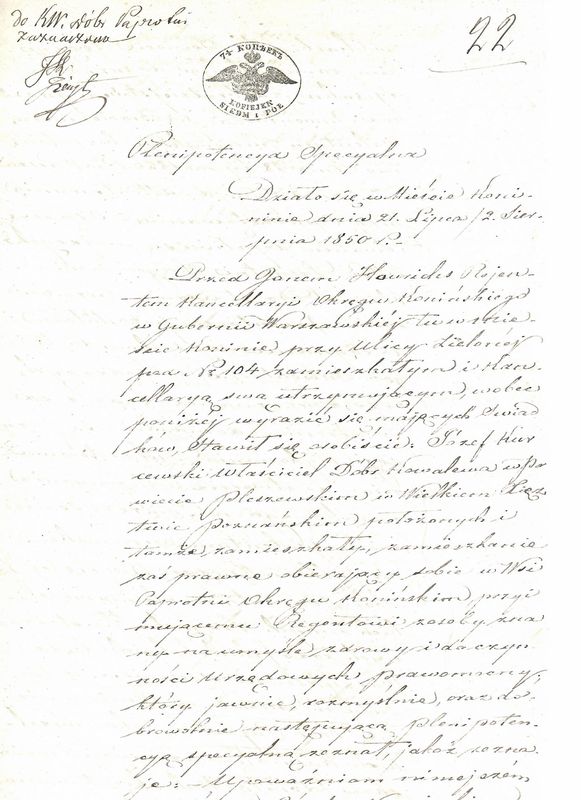 do KW. dóbr Paprotni
22
7½ КОПѢЕКЪ
KOPIEJEK
SIEDM I PÓŁ
Plenipotencya Specyalna
Działo się w Mieście Koni-
ninie dnia 21. Lipca /2. Sier-
pnia 1850 r.-
Przed Janem Rejen-
tem Kancellaryi Okręgu Konińskiego
w Gubernii Warszawskiéj tu w Mie-
ście Koninie, przy Ulicy Zielonéj
pod Nr. 104 zamieszkałym i Kan-
cellaryą swą utrzymującym, wobec
poniżéj wyrazić się mających Świad
ków, stawił się osobiście: Józef Kur
cewski Właściciel Dóbr Kowalewa w Po
wiecie Pleszewskim w Wielkiem Xięz
twie Poznańskim położonych i
tamże zamieszkały, zamieszkanie
zaś prawne obierający sobie w Wsi
Paprotni Okręgu Konińskim, przyi
mującemu Regentowi z osoby zna
ny, na umyśle zdrowy i do czyn
ności urzędowych prawomocny,
który jawnie, rozmyślnie, oraz do-
browolnie następującą plenipoten-
cyą specyalną zeznał, jakoż zezna
je: - Upoważniam niniejszém